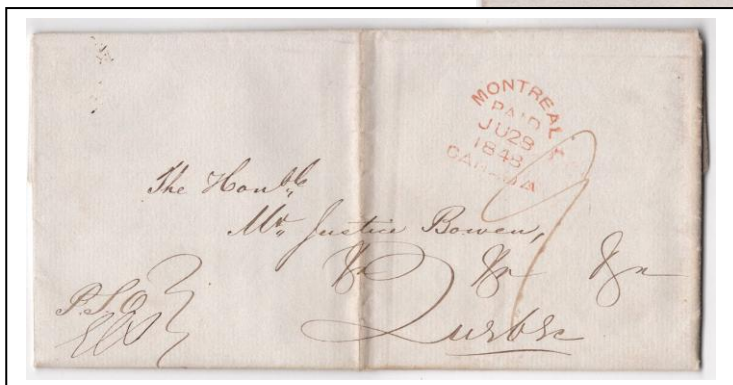 MONTREAL
PAID
JU 29
1848
CANADA
The Honble
Mr Justice Bowen,
&c &c &c
Quebec